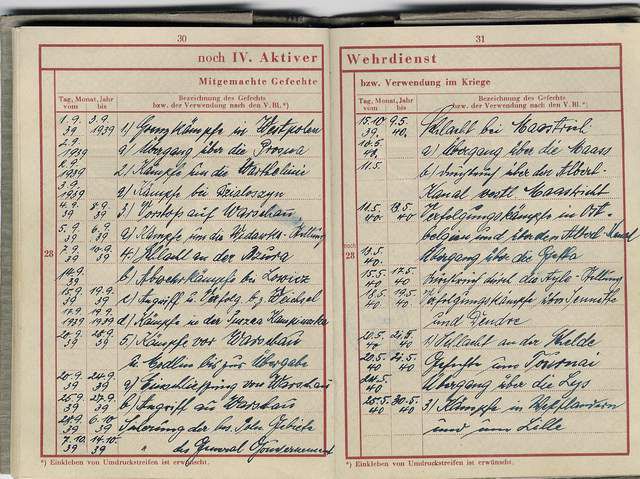 30
noch IV. Aktiver
Mitgemachte Gefechte
Tag, Monat, Jahr
vom bis
Bezeichnung des Gefechts
bzw. der Verwendung nach den V.Bl.*)
28
1.9. 3.9.
39 1939 1) Grenzkämpfe in Westpolen
2.9.
1939 a) Übergang über die Prosna
1939 2) Kämpfe um die Warthelinie
3.9.
1939 a) Kämpfe bei Dzialoszyn
4.9. 8.9.
39 39 3) Vorstoß auf Warschau
5.9. 6.9.
39 39 a) Kämpfe um die Widawka-Stellung
7.9. 10.9.
39 39 4) Schlacht an der Bzura
39 b) Abwehrkämpfe bei Lowicz
19.9.
39 39 c) Angriff u. Verfolg. b. z. Weichsel
17.9. 19.9.
1939 1939 d) Kämpfe in der Puszca Kampinoska
39 39 5) Kämpfe vor Warschau
u. Modlin bis zur Übergabe
20.9. 24.9.
39 39 a) Einschließung von Warschau
27.9.
39 39 b) Angriff auf Warschau
6.10.
39 39 Säuberung der bes. Poln. Gebiete
7.10. 14.10.
39 39 " des General Gouvernement
*) Einkleben von Umdruckstreifen ist erwünscht.
31
Wehrdienst
bzw. Verwendung im Kriege
Tag, Monat, Jahr
vom bis
Bezeichnung des Gefechts
bzw. der Verwendung nach den V.Bl.*)
noch
28
15.10. 9.5.
39. 40. Schlacht bei Maastricht
10.5.
40. a) Übergang über die Maas
11.5. b) über den Albert-
Kanal westl. Maastricht
11.5. 19.5. 2)
40. 40. Verfolgungskämpfe in Ost-
belgien und über den Albert Kanal
40 Übergang über die Getta
15.5. 17.5.
40 40 Durchbruch durch die Dyle-Stellung
18.5. 19.5.
40 40 Verfolgungskämpfe von Senne
und Dendre
20.5.
40 40 Schlacht an der Schelde
20.5.
40 40 Gefechte um Tournai
40 Übergang über die Lys
25.5. 30.5.
40 40 3) Kämpfe in Westflandern
und um Lille
*) Einkleben von Umdruckstreifen ist erwünscht.